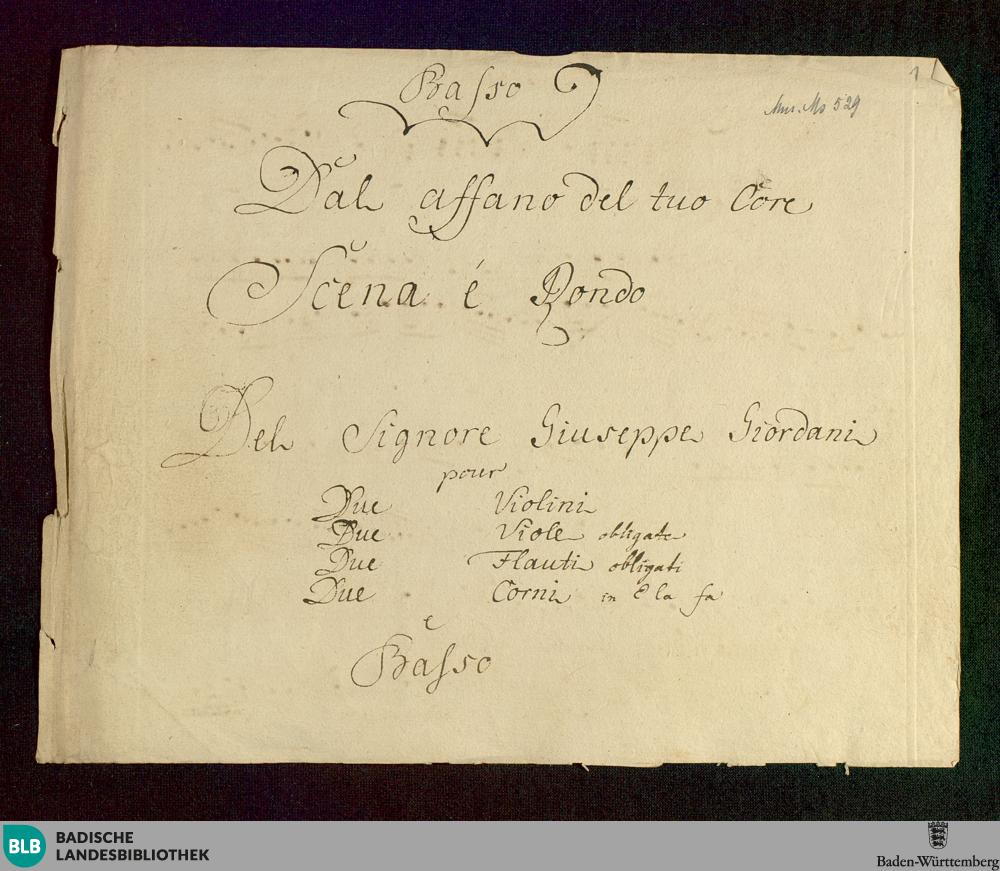 Basso
1
Mus. Ms 529
Dal affano del tuo Core
Scena é Rondo
Del Signore Giuseppe Giordani
pour
Due Violini
Due Viole obligate
Due Flauti obligati
Due Corni in E la fa
e
Basso
BLB BADISCHE
LANDESBIBLIOTHEK
Baden-Württemberg